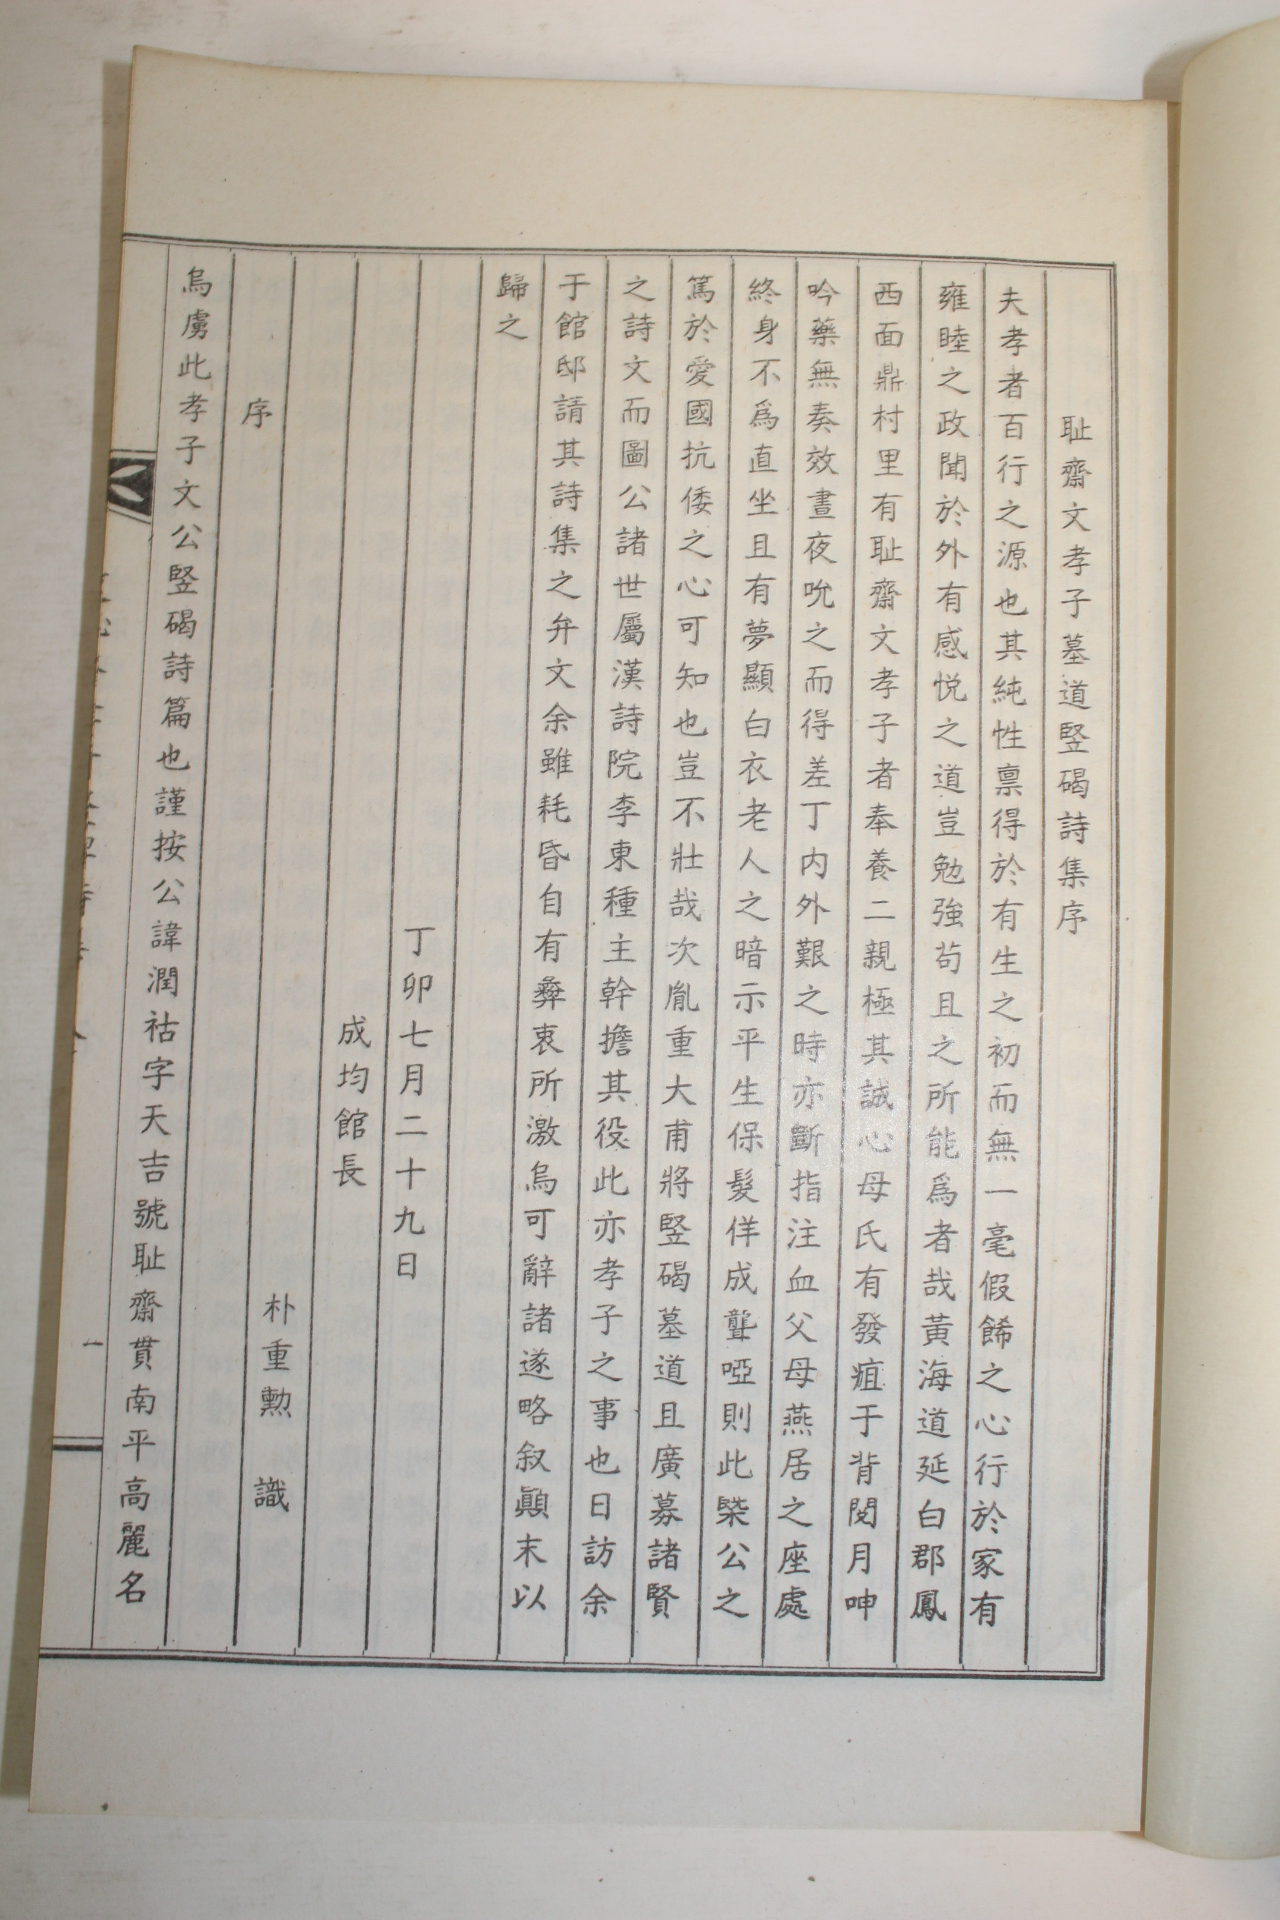 耻齋文孝子墓道竪碣詩集序
夫孝者百行之源也其純性禀得於有生之初而無一毫假餙之心行於家有
雍睦之政聞於外有感悅之道豈勉強苟且之所能爲者哉黃海道延白郡鳳
西面鼎村里有耻齋文孝子者奉養二親極其誠心母氏有發疽于背閱月呻
吟藥無奏效晝夜吮之而得差丁内外艱之時亦斷指注血父母燕居之座處
終身不爲直坐且有夢顯白衣老人之暗示平生保髮佯成聾啞則此槩公之
篤於愛國抗倭之心可知也豈不壯哉次胤重大甫將竪碣墓道且廣募諸賢
之詩文而圖公諸世屬漢詩院李東種主幹擔其役此亦孝子之事也日訪余
于館邸請其詩集之弁文余雖耗昏自有彝衷所激烏可辭諸遂略叙顚末以
歸之
丁卯七月二十九日
成均館長
朴重勲 識
序
烏虖此孝子文公竪碣詩篇也謹按公諱潤祜字天吉號耻齋貫南平高麗名
一